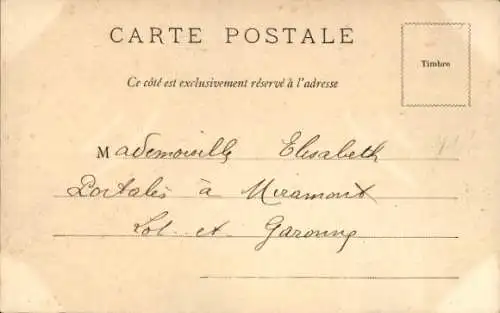 CARTE POSTALE
Timbre
Ce côté est exclusivement réservé à l'adresse
Mademoiselle Elisabeth
Portalès à Miramont
Lot et Garonne